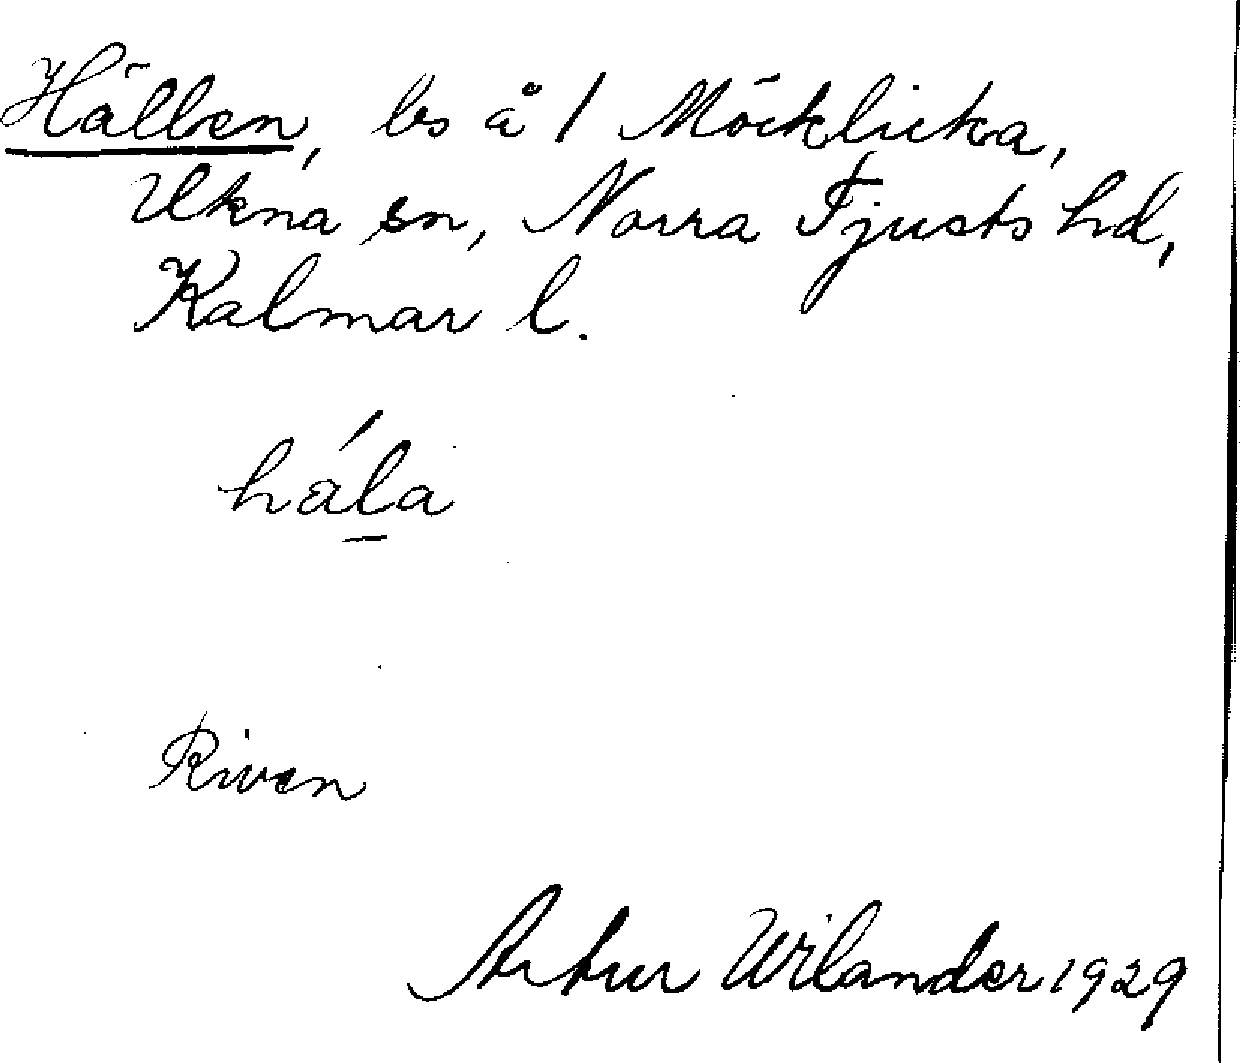 Hällen, ls å 1 Möcklicka,
Ukna sn, Norra Tjusts hd,
Kalmar l.
hála
Riven
Artur Wilander 1929